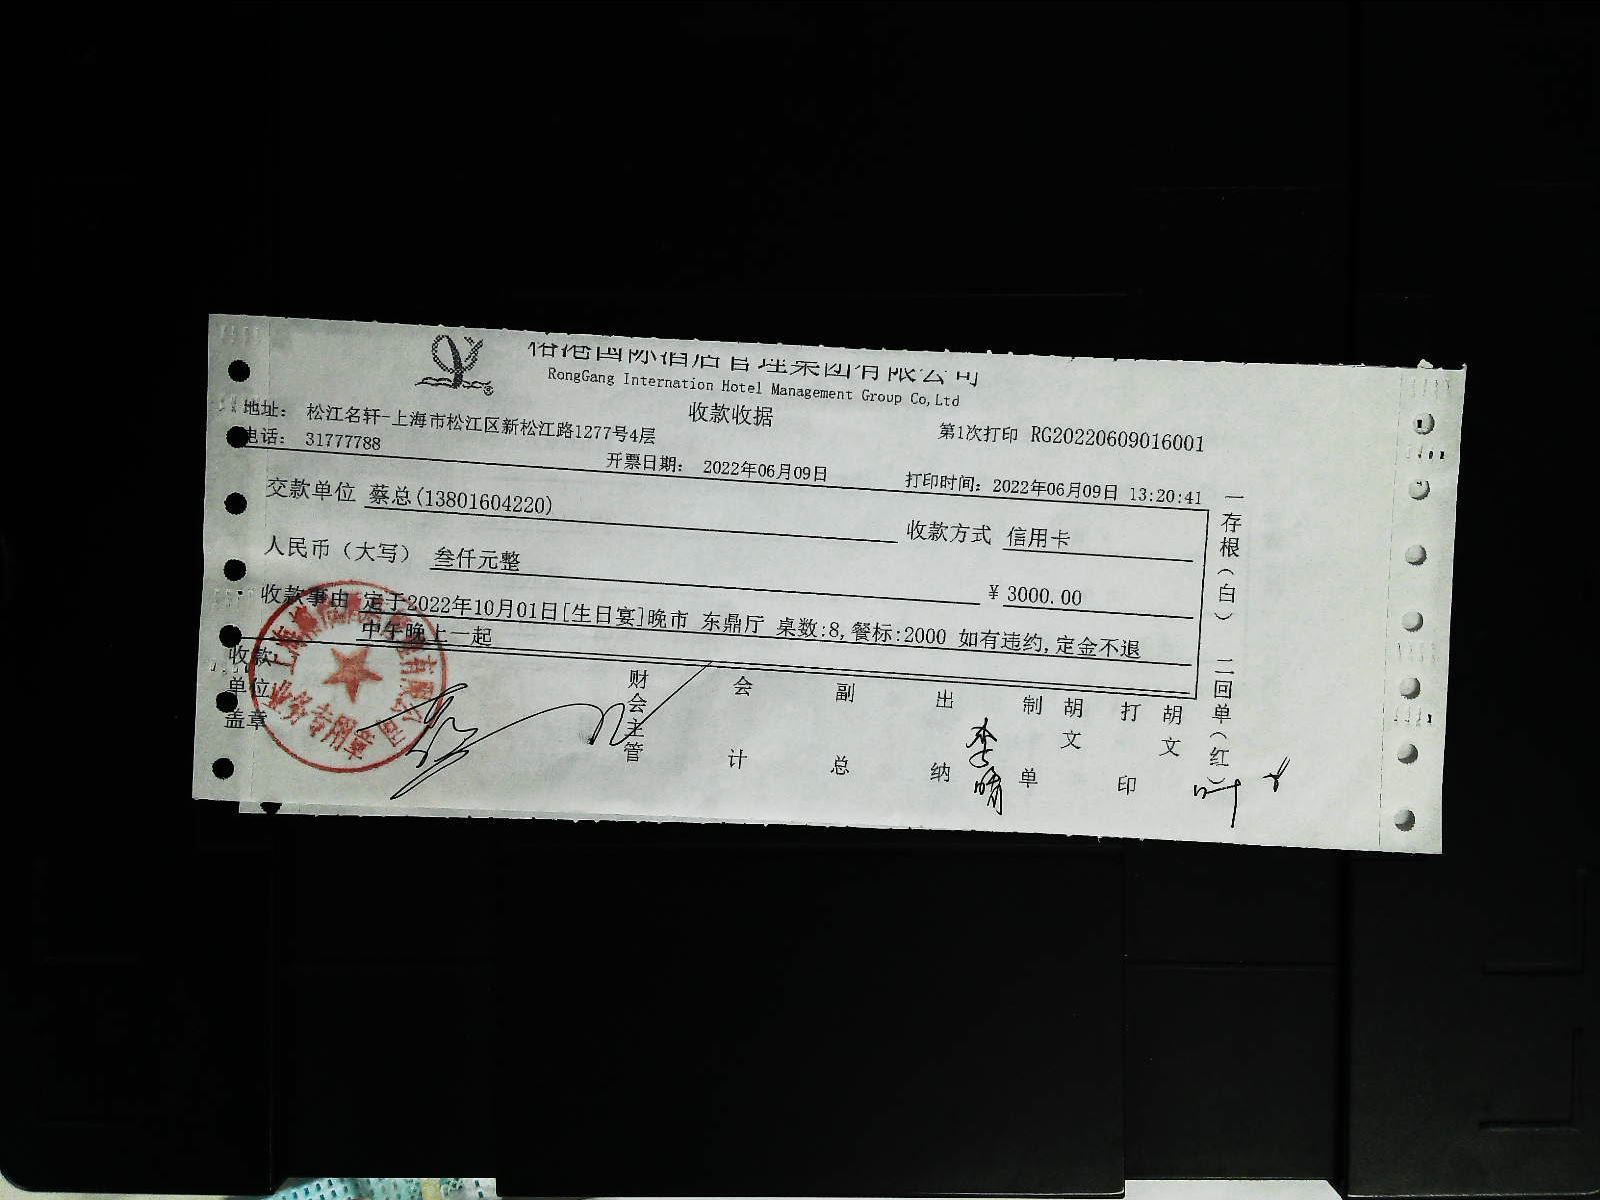 榕港国际酒店管理集团有限公司
RongGang Internation Hotel Management Group Co,Ltd
收款收据
地址: 松江名轩-上海市松江区新松江路1277号4层
第1次打印 RG20220609016001
电话: 31777788
开票日期: 2022年06月09日
打印时间:2022年06月09日 13:20:41
交款单位 蔡总(13801604220)
收款方式 信用卡
人民币(大写) 叁仟元整
¥3000.00
收款事由 定于2022年10月01日[生日宴]晚市 东鼎厅 桌数:8,餐标:2000 如有违约,定金不退
中午晚上一起
收款单位盖章
财会主管
会计
副总
出纳
李晴
制单
胡文
打印
胡文
一存根(白) 二回单(红)
业务专用章